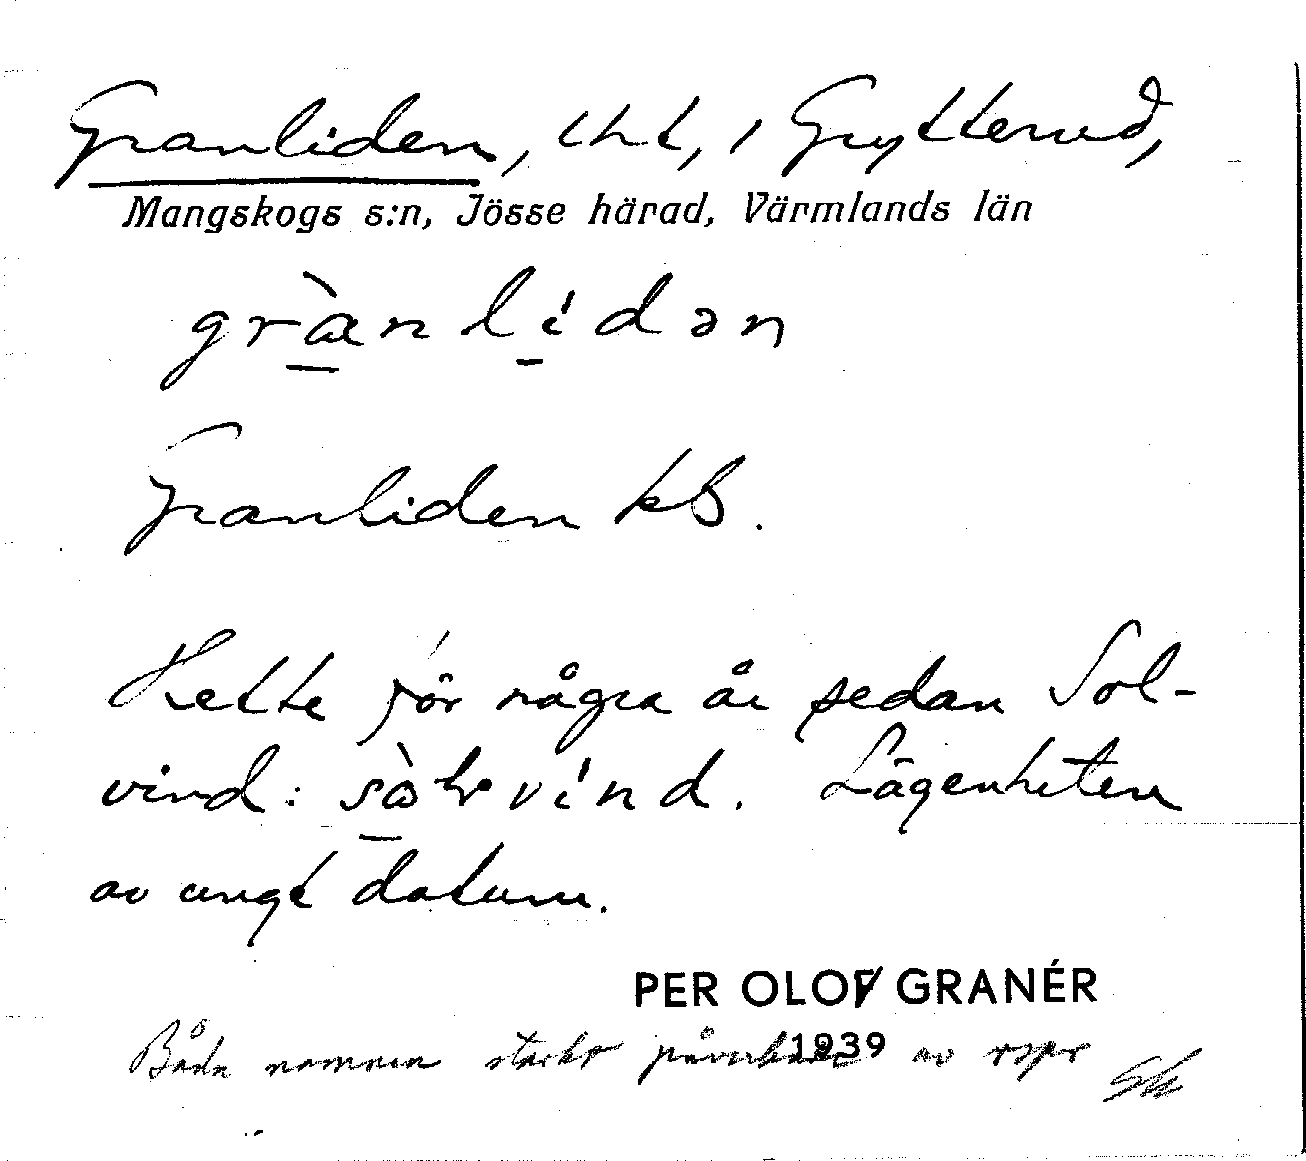 Granliden, lht, i Grytterud,
Mangskogs s:n, Jösse härad, Värmlands län
grànlídən
Granliden kB.
Hette för några år sedan Sol-
vind: sòlvínd. Lägenheten
av ungt datum.
PER OLOV GRANÉR
1939
Båda namnen starkt påverkade av rspr